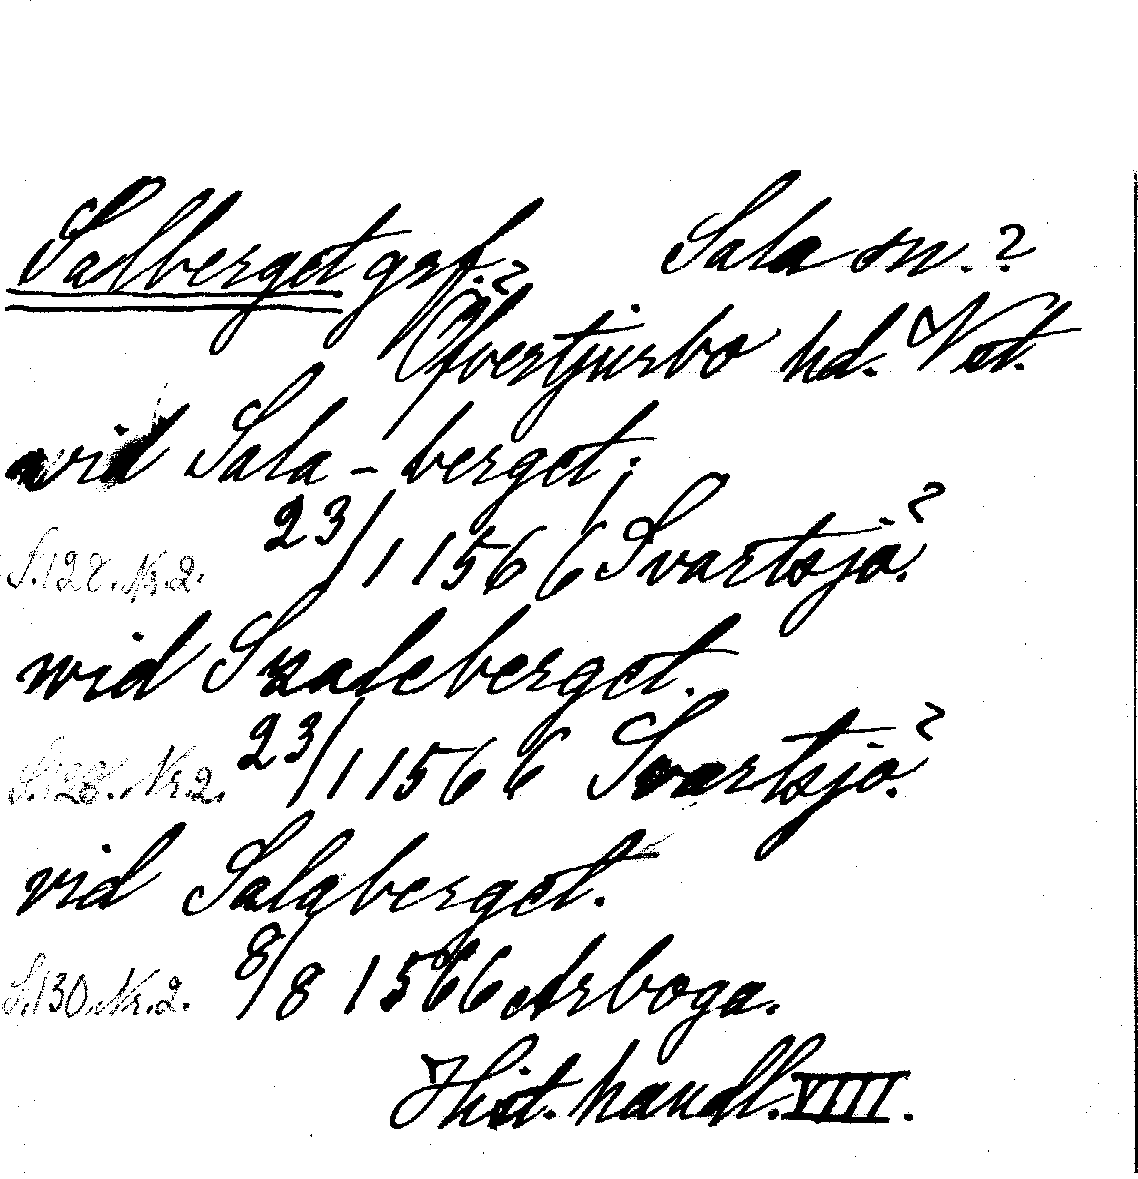 Salberget grf.? Sala sn.?
Övertjurbo hd. Vst.
wid Sala-berget;
S.128. Nr.2. 23/1 1566 Svartsjö?
wid Szaleberget.
S.128. Nr.2. 23/1 1566 Svartsjö?
vid Salaberget.
S.130. Nr.2. 8/8 1566 Arboga.
Hist. handl. VIII.